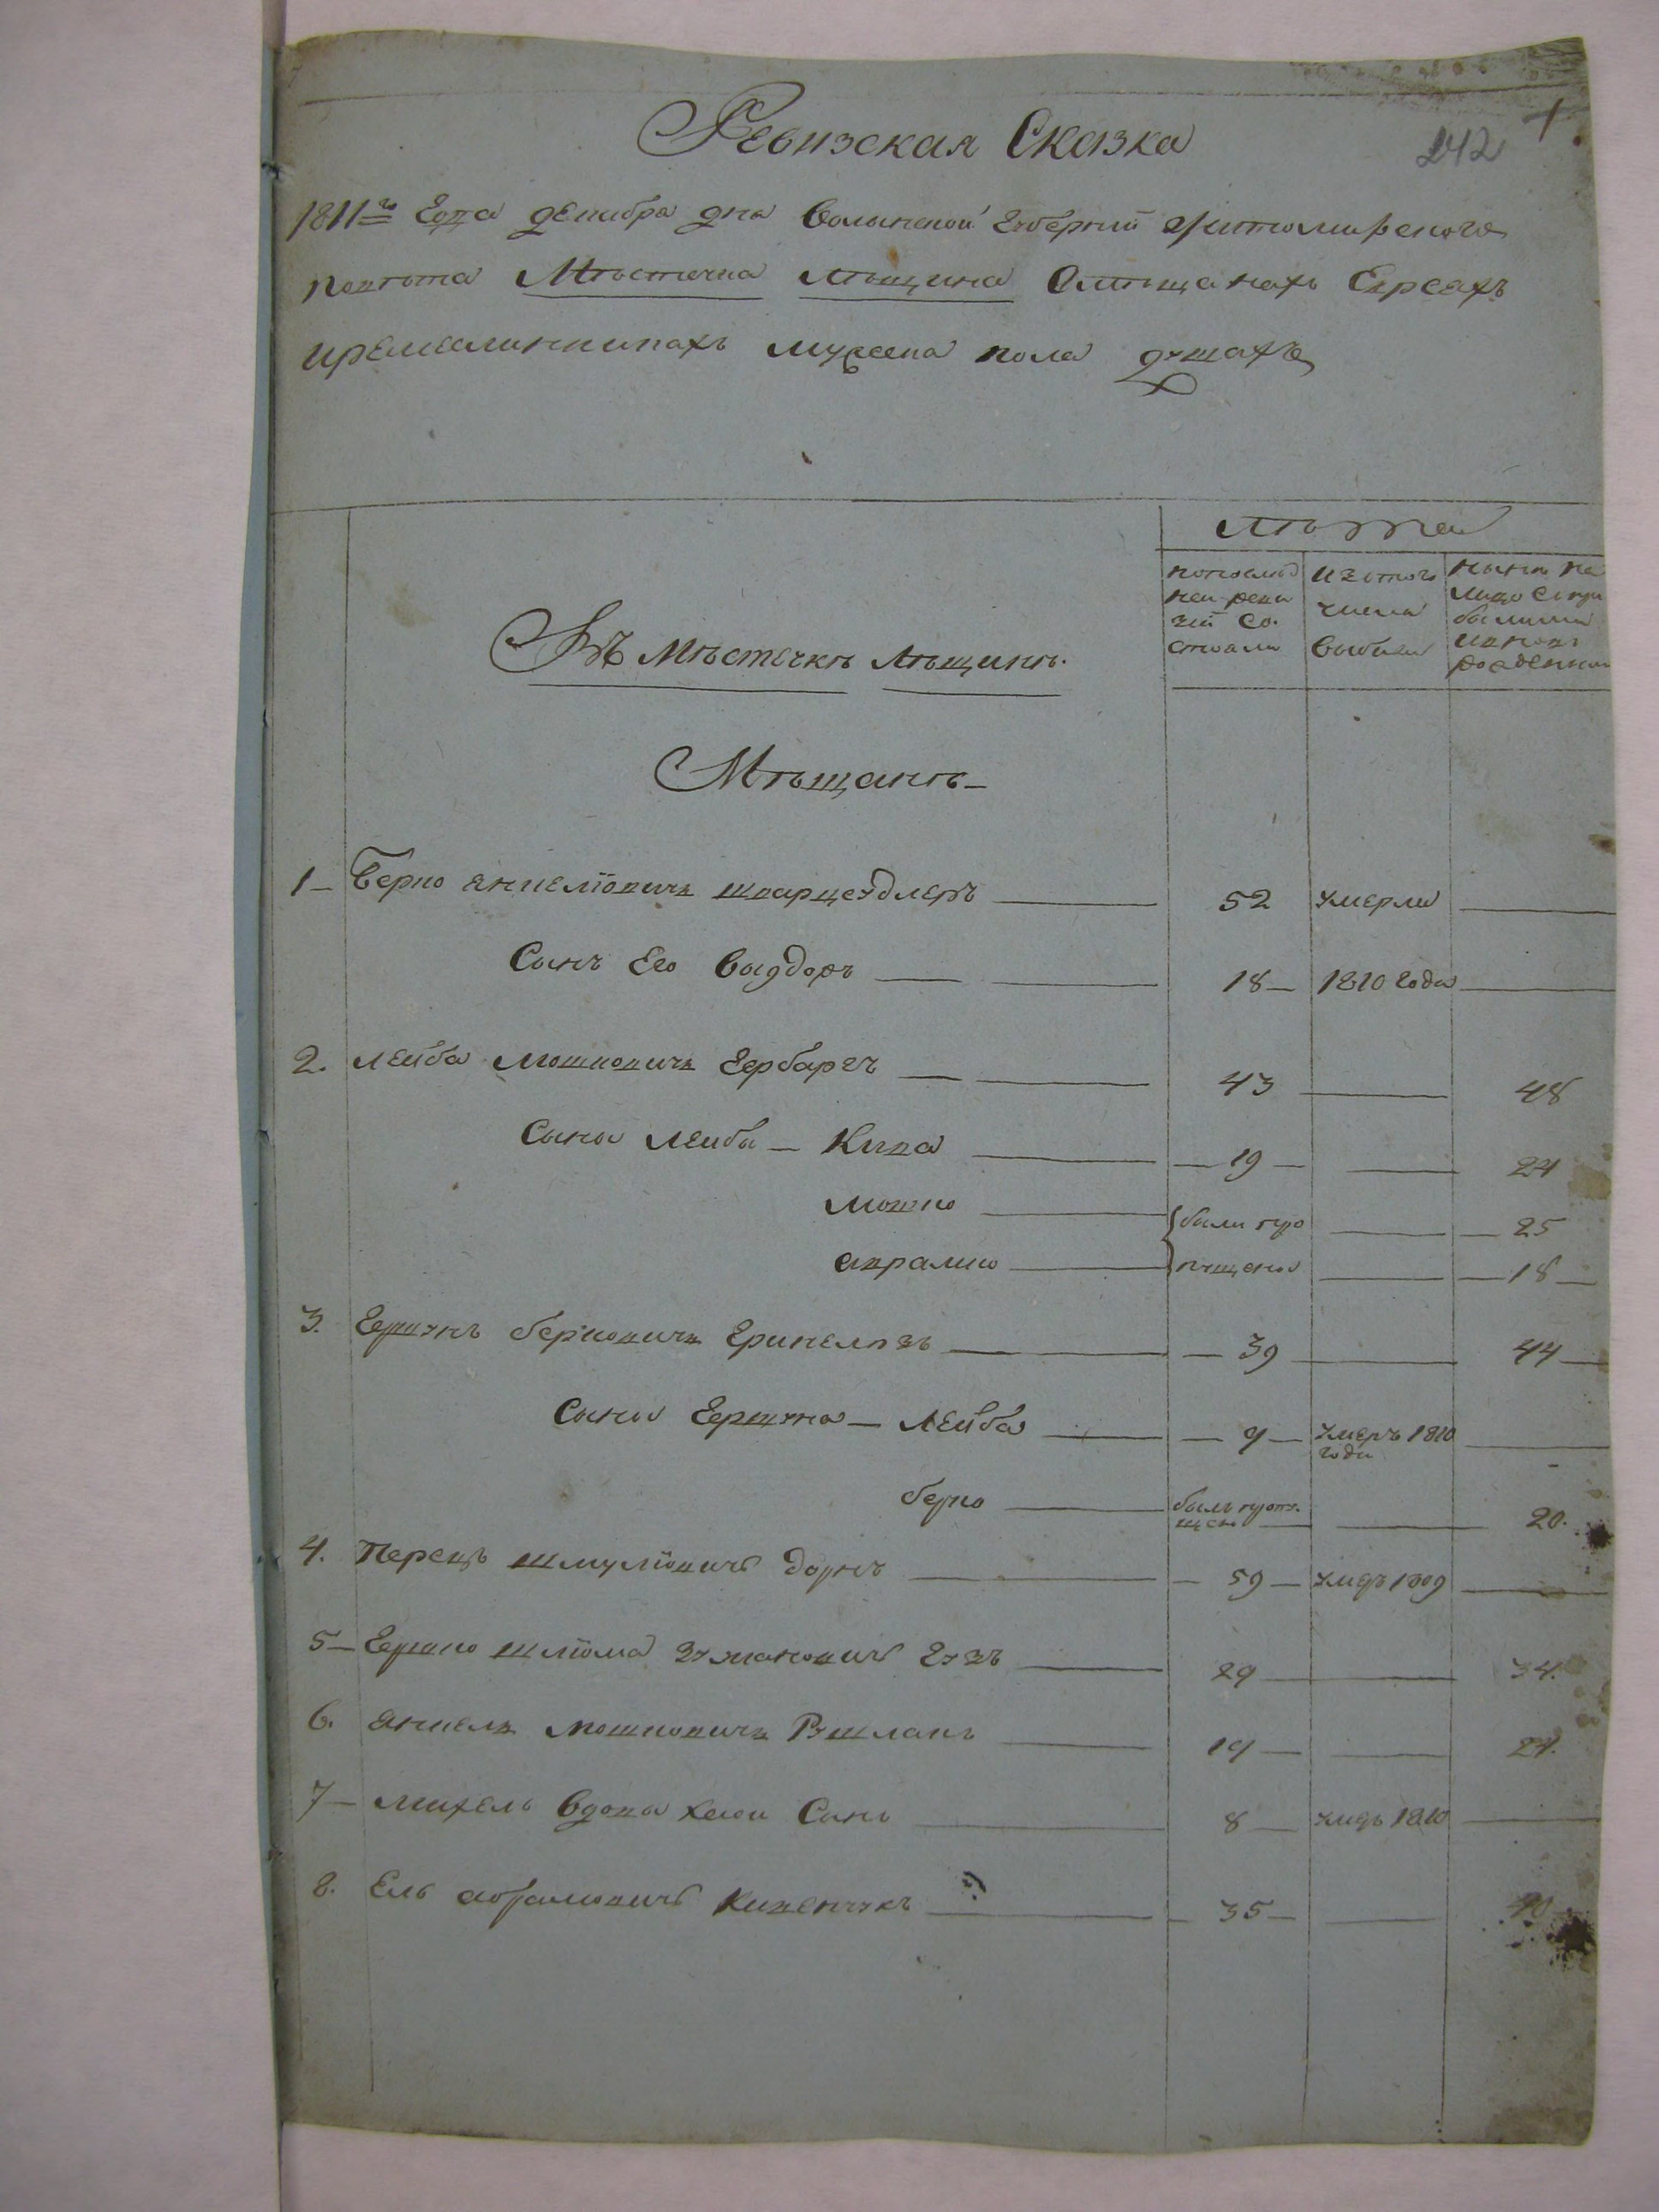 Ревизская Сказка
242
1811го Года декабря дня Волынской Губернии Житомирского
Повѣта Мѣстечка Лѣщина О мѣщанахъ Евреахъ
и ремесленникахъ мужеска пола душахъ
Лѣта
Въ Мѣстечкѣ Лѣщинѣ.
по послѣд
ней реви
зіи со-
стояли
изъ того
числа
выбыли
нынѣ на
лицо
Мѣщанѣ
1 Берко Янкеліовичъ Шварцеудлеръ 52 умерли
Сынъ Его Выгдоръ 18 1810 года
2. Лейба Мошковичъ Гербаргъ 43 48
Сыны Лейбы Кива 19 24
Мошко были про 25
Аврамко пущены 18
3. Гершунъ Берковичъ Гринелпзъ 39 44
Сыны Гершуна Лейба 9 умеръ 1810
года
Берко былъ пропу-
щен 20.
4. Перецъ Шмуліовичъ Дорнъ 59 умеръ 1809
5 Гершко Шліома Зусмановичъ Гузъ 29 34.
6. Янкель Мошковичъ Рушлакъ 19 24.
7 Михель вдовы Хаси Сынъ 8 умеръ 1810
8. Ель Абрамовичъ Кивенчукъ 35 40